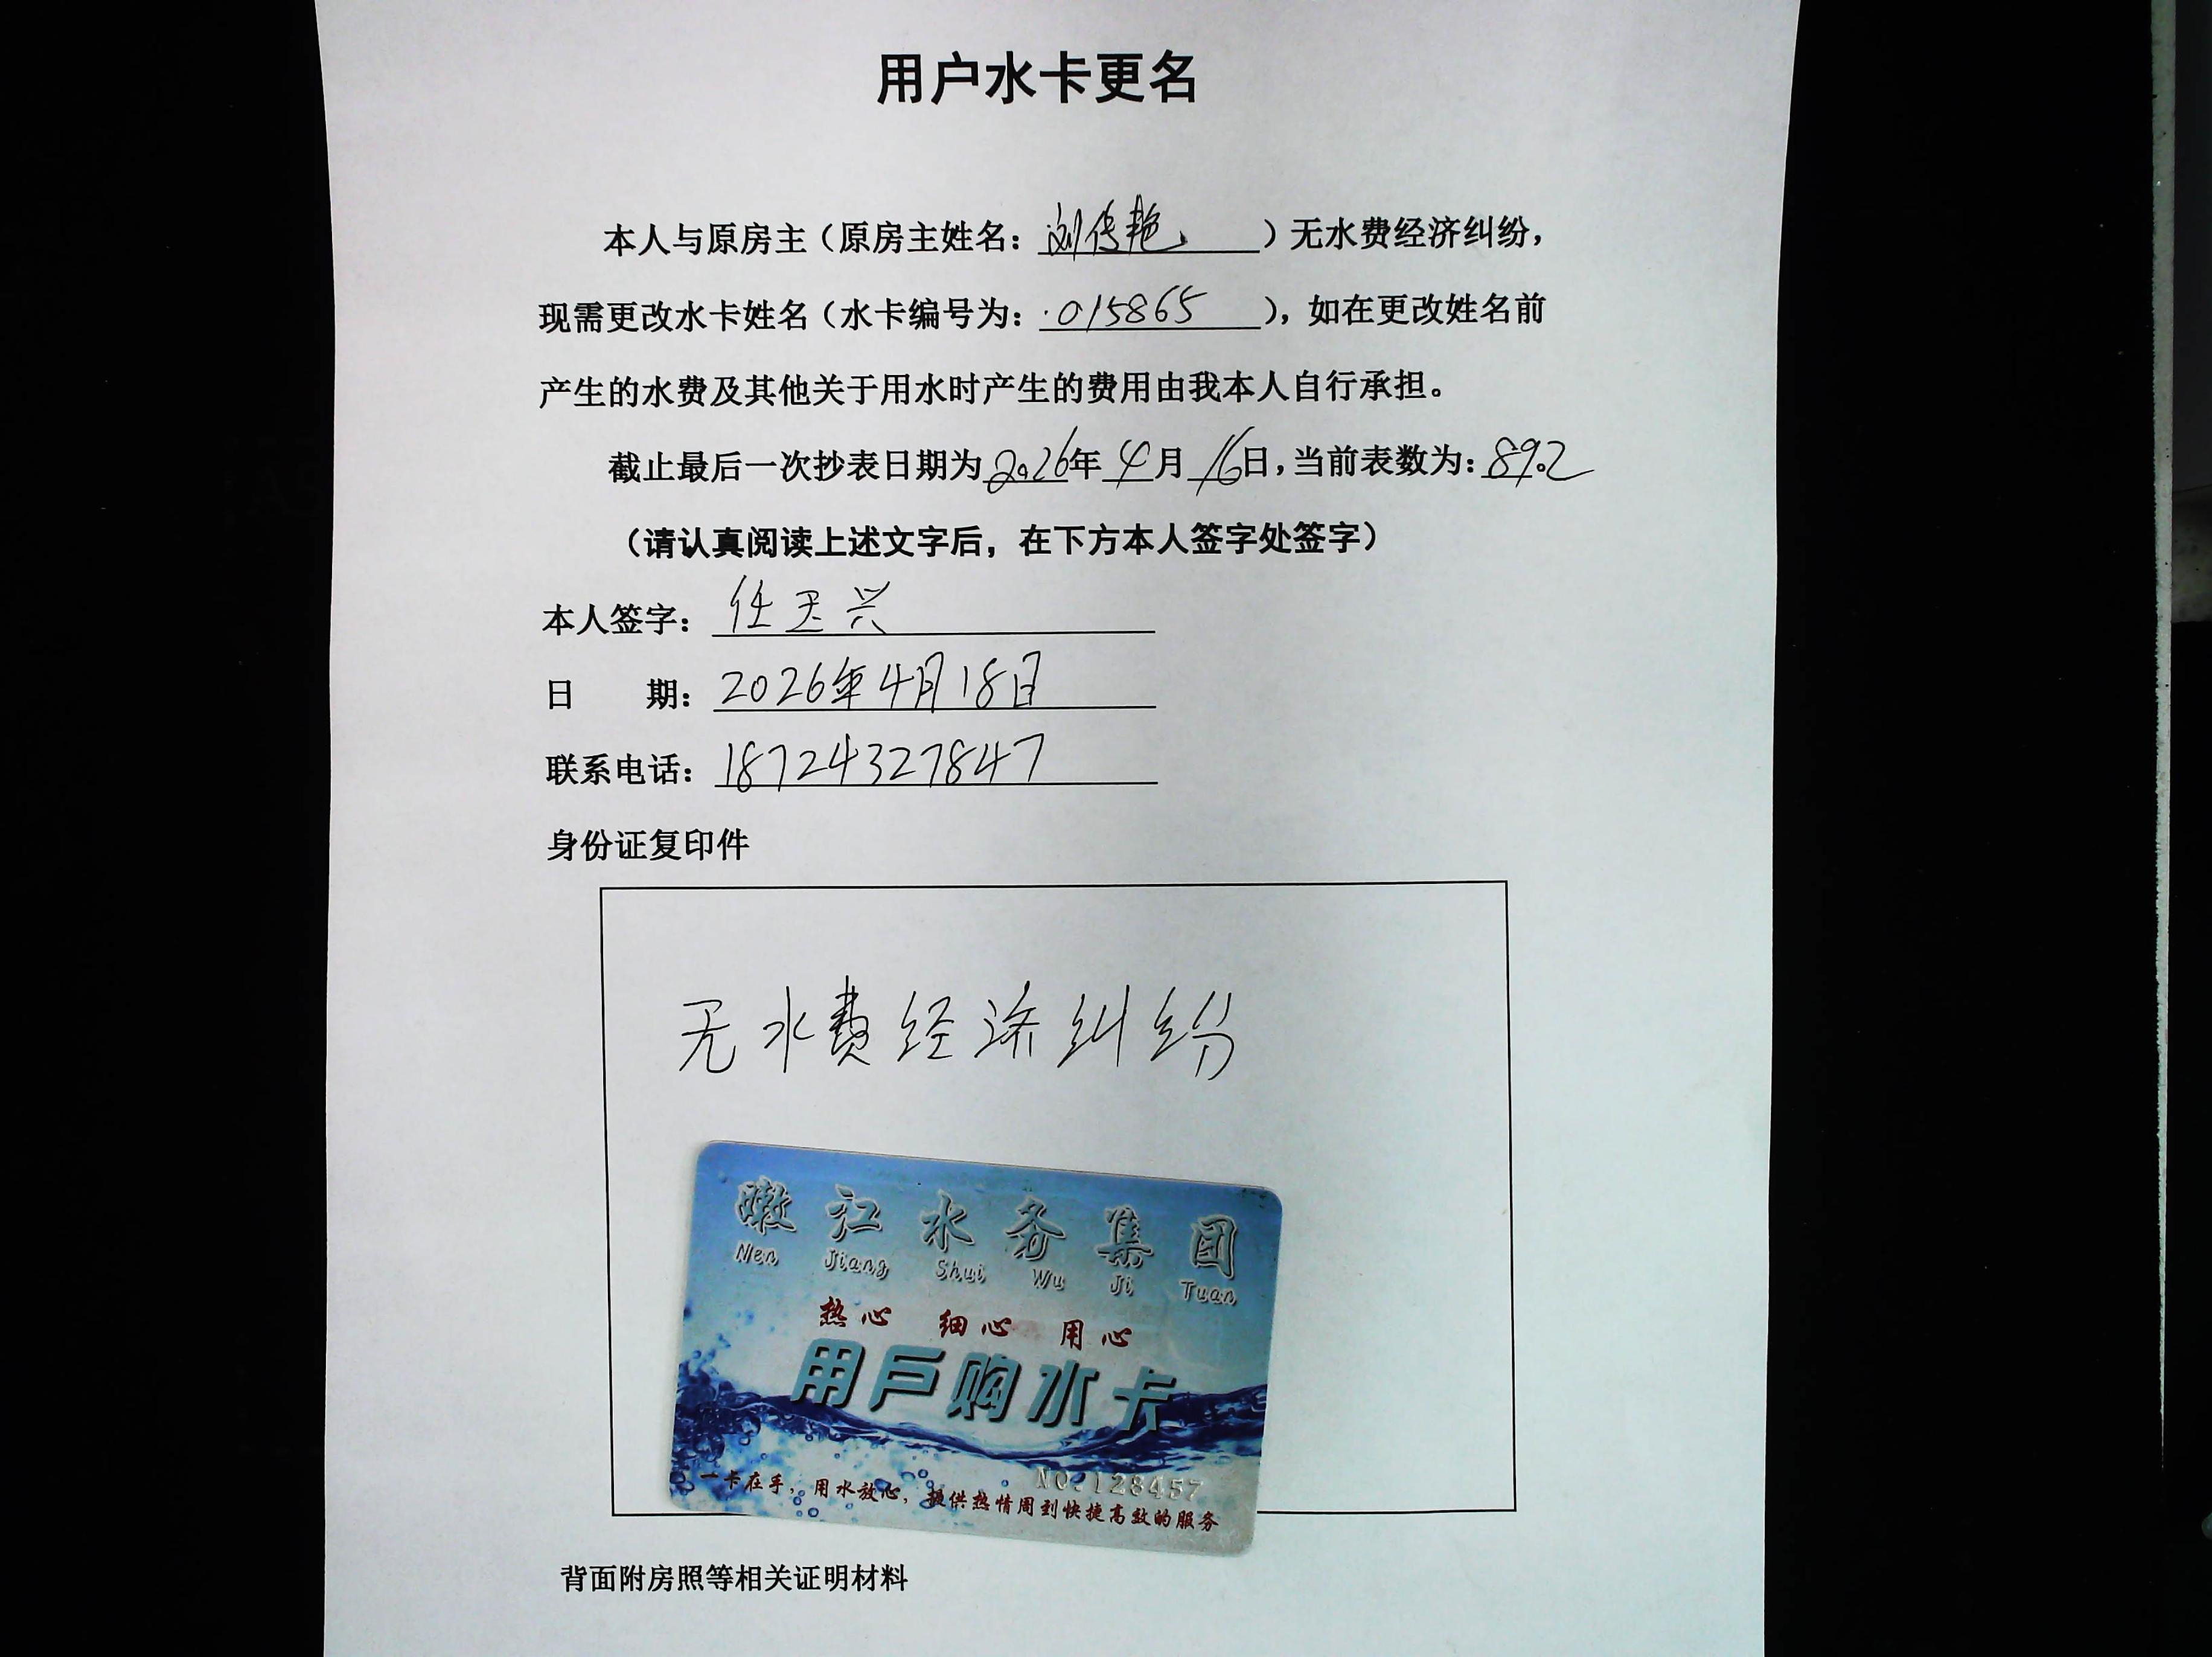 用户水卡更名
本人与原房主（原房主姓名：刘传艳）无水费经济纠纷，
现需更改水卡姓名（水卡编号为：015865），如在更改姓名前
产生的水费及其他关于用水时产生的费用由我本人自行承担。
截止最后一次抄表日期为2026年4月16日，当前表数为：892
（请认真阅读上述文字后，在下方本人签字处签字）
本人签字：任玉兴
日 期：2026年4月18日
联系电话：18724327847
身份证复印件
无水费经济纠纷
嫩江水务集团
Nen Jiang Shui Wu Ji Tuan
热心 细心 用心
用户购水卡
NO.128457
一卡在手，用水放心，提供热情周到快捷高效的服务
背面附房照等相关证明材料